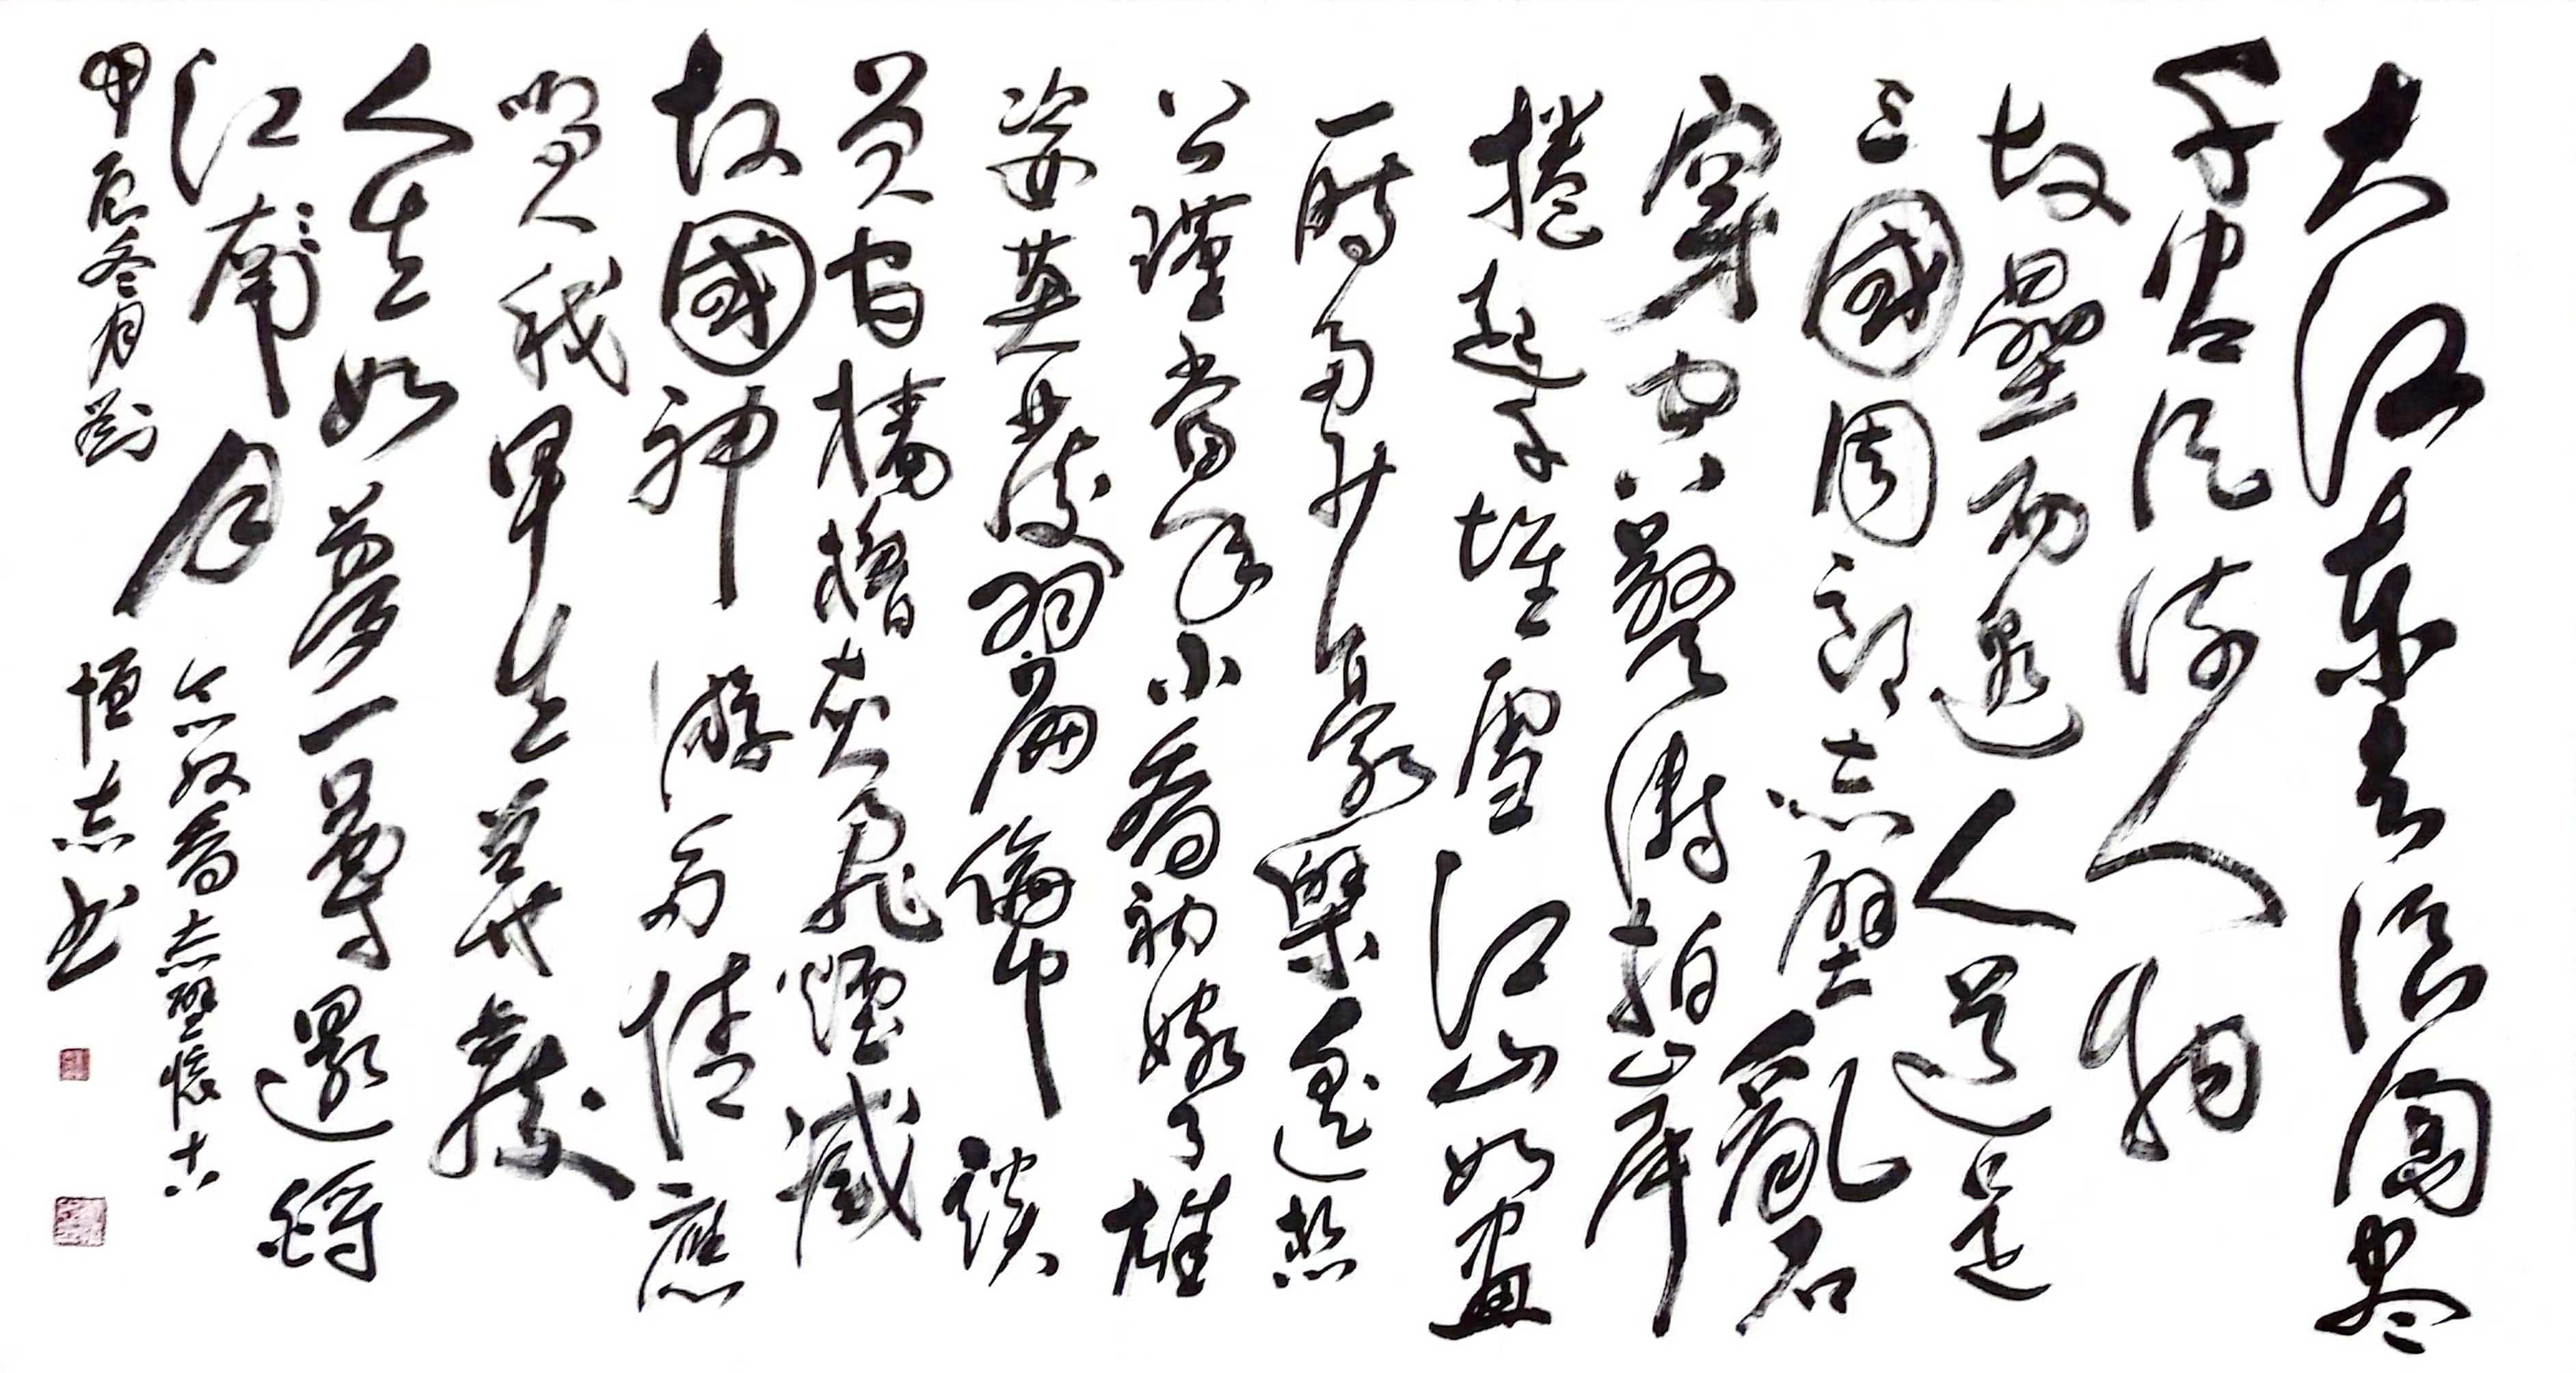 大江東去浪淘盡
千古風流人物
故壘西邊人道是
三國周郎赤壁亂石
穿空驚濤拍岸
捲起千堆雪江山如畫
一時多少豪傑遙想
公瑾當年小喬初嫁了雄
姿英發羽扇綸巾談
笑間檣櫓灰飛煙滅
故國神游多情應
笑我早生華髮
人生如夢一尊還酹
江月
念奴嬌赤壁懷古
甲辰冬月劉
恒志书